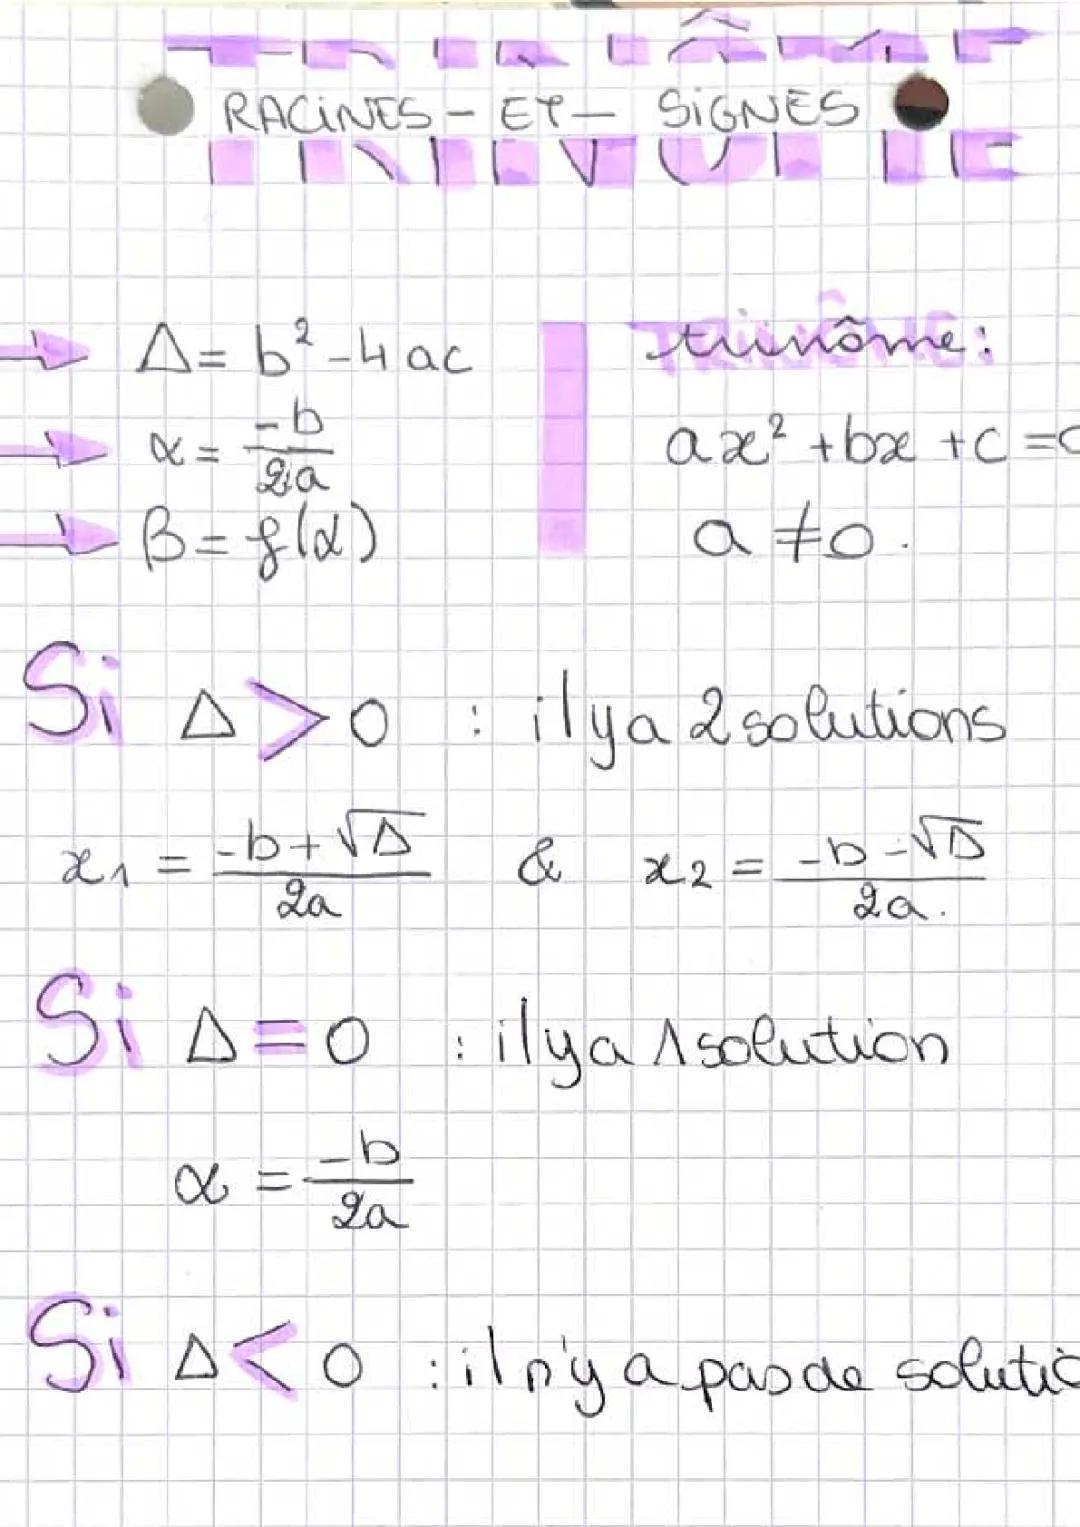 TRINÔME
RACINES - ET - SIGNES
Δ = b² - 4ac
α = -b/2a
β = f(α)
trinôme:
ax² + bx + c =
a ≠ 0.
Si Δ > 0 : il y a 2 solutions
x1 = (-b + √Δ)/2a & x2 = (-b - √Δ)/2a.
Si Δ = 0 : il y a 1 solution
α = -b/2a
Si Δ < 0 : il n'y a pas de solutio